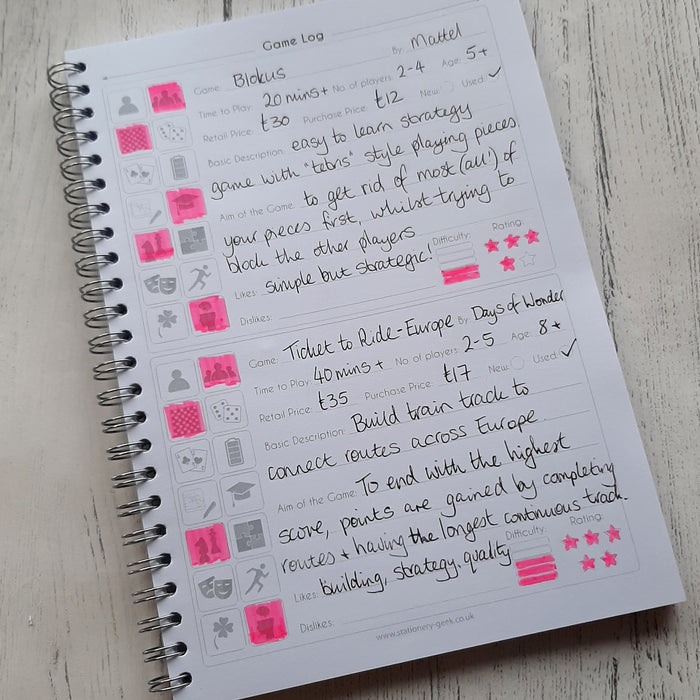 Game Log
Game: Blokus By: Mattel
Time to Play: 20 mins+ No of players: 2-4 Age: 5+
Retail Price: £30 Purchase Price: £12 New: Used: ✓
Basic Description: easy to learn strategy
game with "tetris" style playing pieces
Aim of the Game: to get rid of most (all!) of
your pieces first, whilst trying to
block the other players
Likes: simple but strategic! Difficulty: Rating:
Dislikes:
Game: Ticket to Ride - Europe By: Days of Wonder
Time to Play: 40 mins + No of players: 2-5 Age: 8+
Retail Price: £35 Purchase Price: £17 New: Used: ✓
Basic Description: Build train track to
connect routes across Europe.
Aim of the Game: To end with the highest
score, points are gained by completing
routes + having the longest continuous track.
Likes: building, strategy, quality Difficulty: Rating:
Dislikes:
www.stationery-geek.co.uk